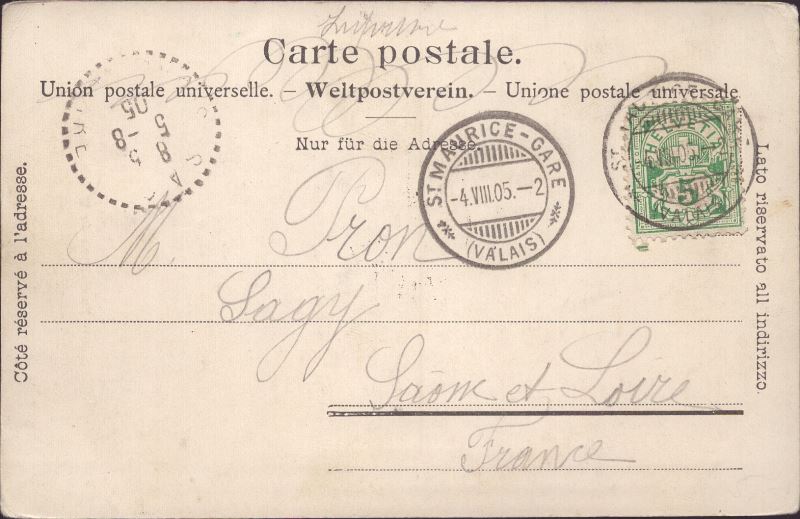 Carte postale.
Union postale universelle. – Weltpostverein. – Unione postale universale
Nur für die Adresse.
ST MAURICE-GARE
-4.VIII.05.-2
(VALAIS)
HELVETIA
5
(VALAIS)
8 5
5-8
05
M. Pron
Sagy
Saône et Loire
France
Côté réservé à l'adresse.
Lato riservato all indirizzo.